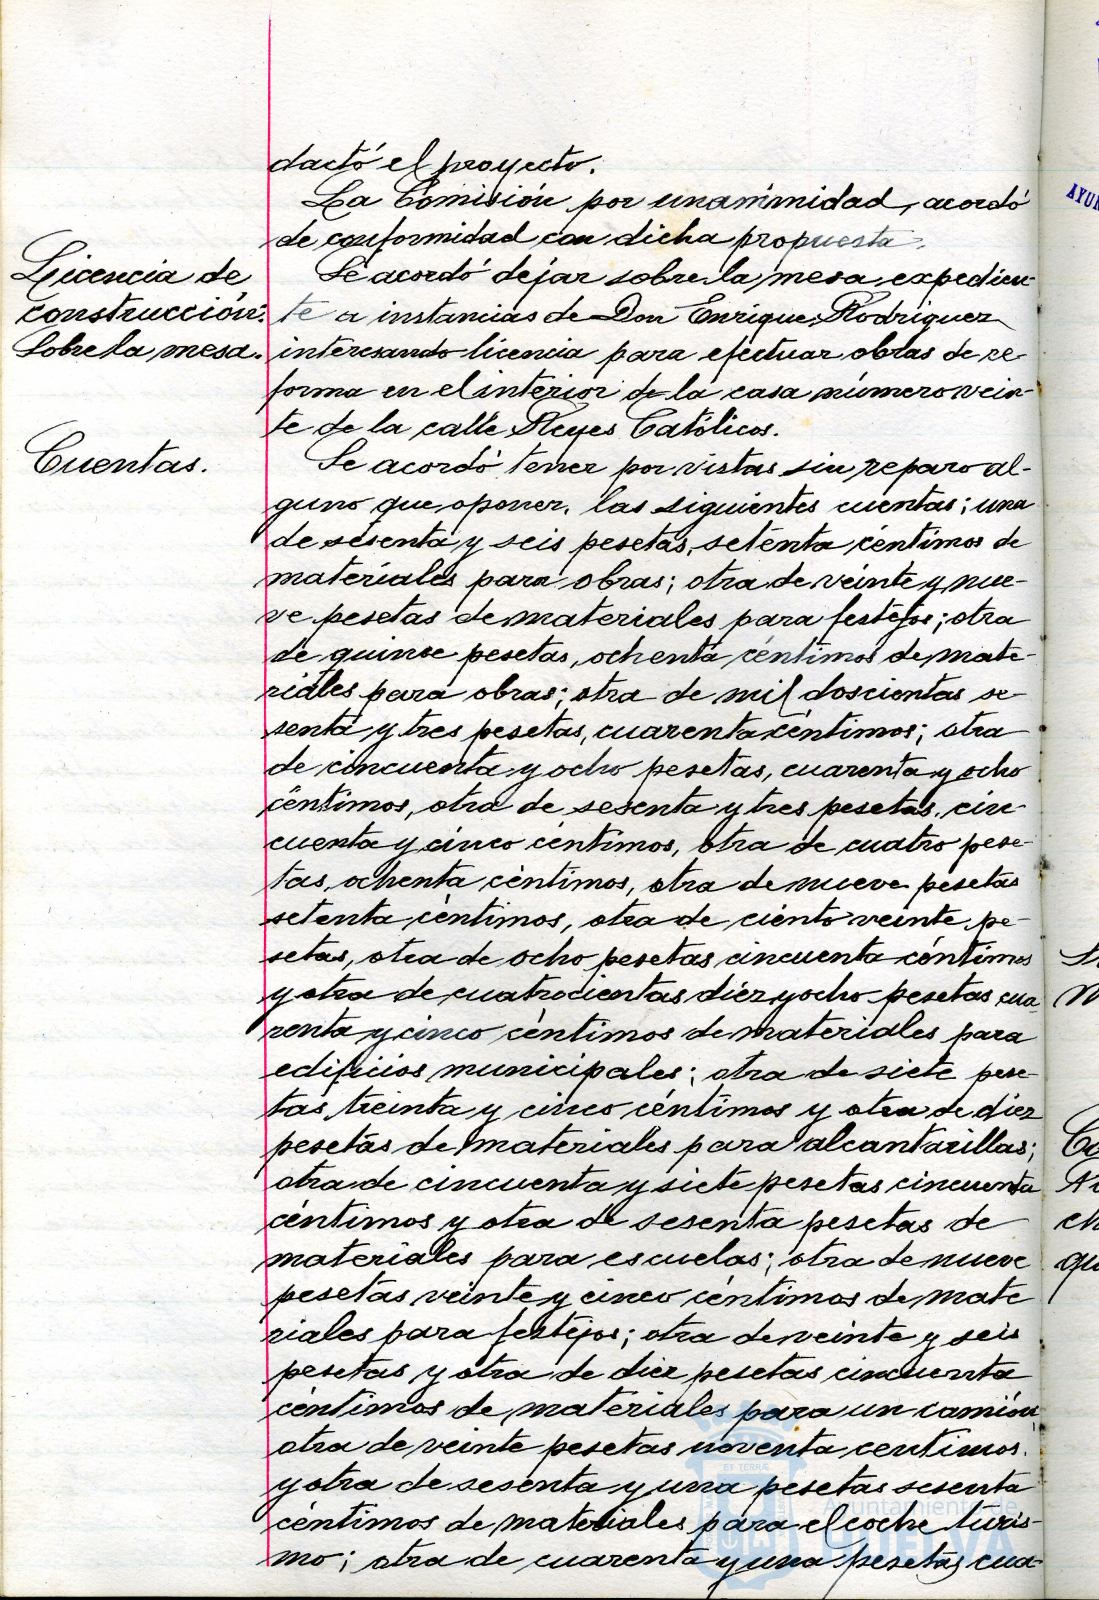 dactó el proyecto.
La Comisión por unanimidad, acordó
de conformidad con dicha propuesta.
Licencia de
construcción.
Sobre la mesa.
Se acordó dejar sobre la mesa expedien-
te a instancias de Don Enrique Rodriguez
interesando licencia para efectuar obras de re-
forma en el interior de la casa número vein-
te de la calle Reyes Católicos.
Cuentas.
Se acordó tener por vistas sin reparo al-
guno que oponer, las siguientes cuentas; una
de sesenta y seis pesetas, setenta céntimos de
materiales para obras; otra de veinte y nue-
ve pesetas de materiales para festejos; otra
de quince pesetas, ochenta céntimos de mate-
riales para obras; otra de mil doscientas se-
senta y tres pesetas, cuarenta céntimos; otra
de cincuenta y ocho pesetas, cuarenta y ocho
céntimos, otra de sesenta y tres pesetas, cin-
cuenta y cinco céntimos, otra de cuatro pese-
tas, ochenta céntimos, otra de nueve pesetas
setenta céntimos, otra de ciento veinte pe-
setas, otra de ocho pesetas cincuenta céntimos
y otra de cuatrocientas diez y ocho pesetas cua-
renta y cinco céntimos de materiales para
edificios municipales; otra de siete pese-
tas treinta y cinco céntimos y otra de diez
pesetas de materiales para alcantarillas;
otra de cincuenta y siete pesetas cincuenta
céntimos y otra de sesenta pesetas de
materiales para escuelas; otra de nueve
pesetas veinte y cinco céntimos de mate
riales para festejos; otra de veinte y seis
pesetas y otra de diez pesetas cincuenta
céntimos de materiales para un camión,
otra de veinte pesetas noventa centimos.
y otra de sesenta y una pesetas sesenta
céntimos de materiales para el coche turis-
mo; otra de cuarenta y una pesetas cua-
Ayuntamiento de
HUELVA